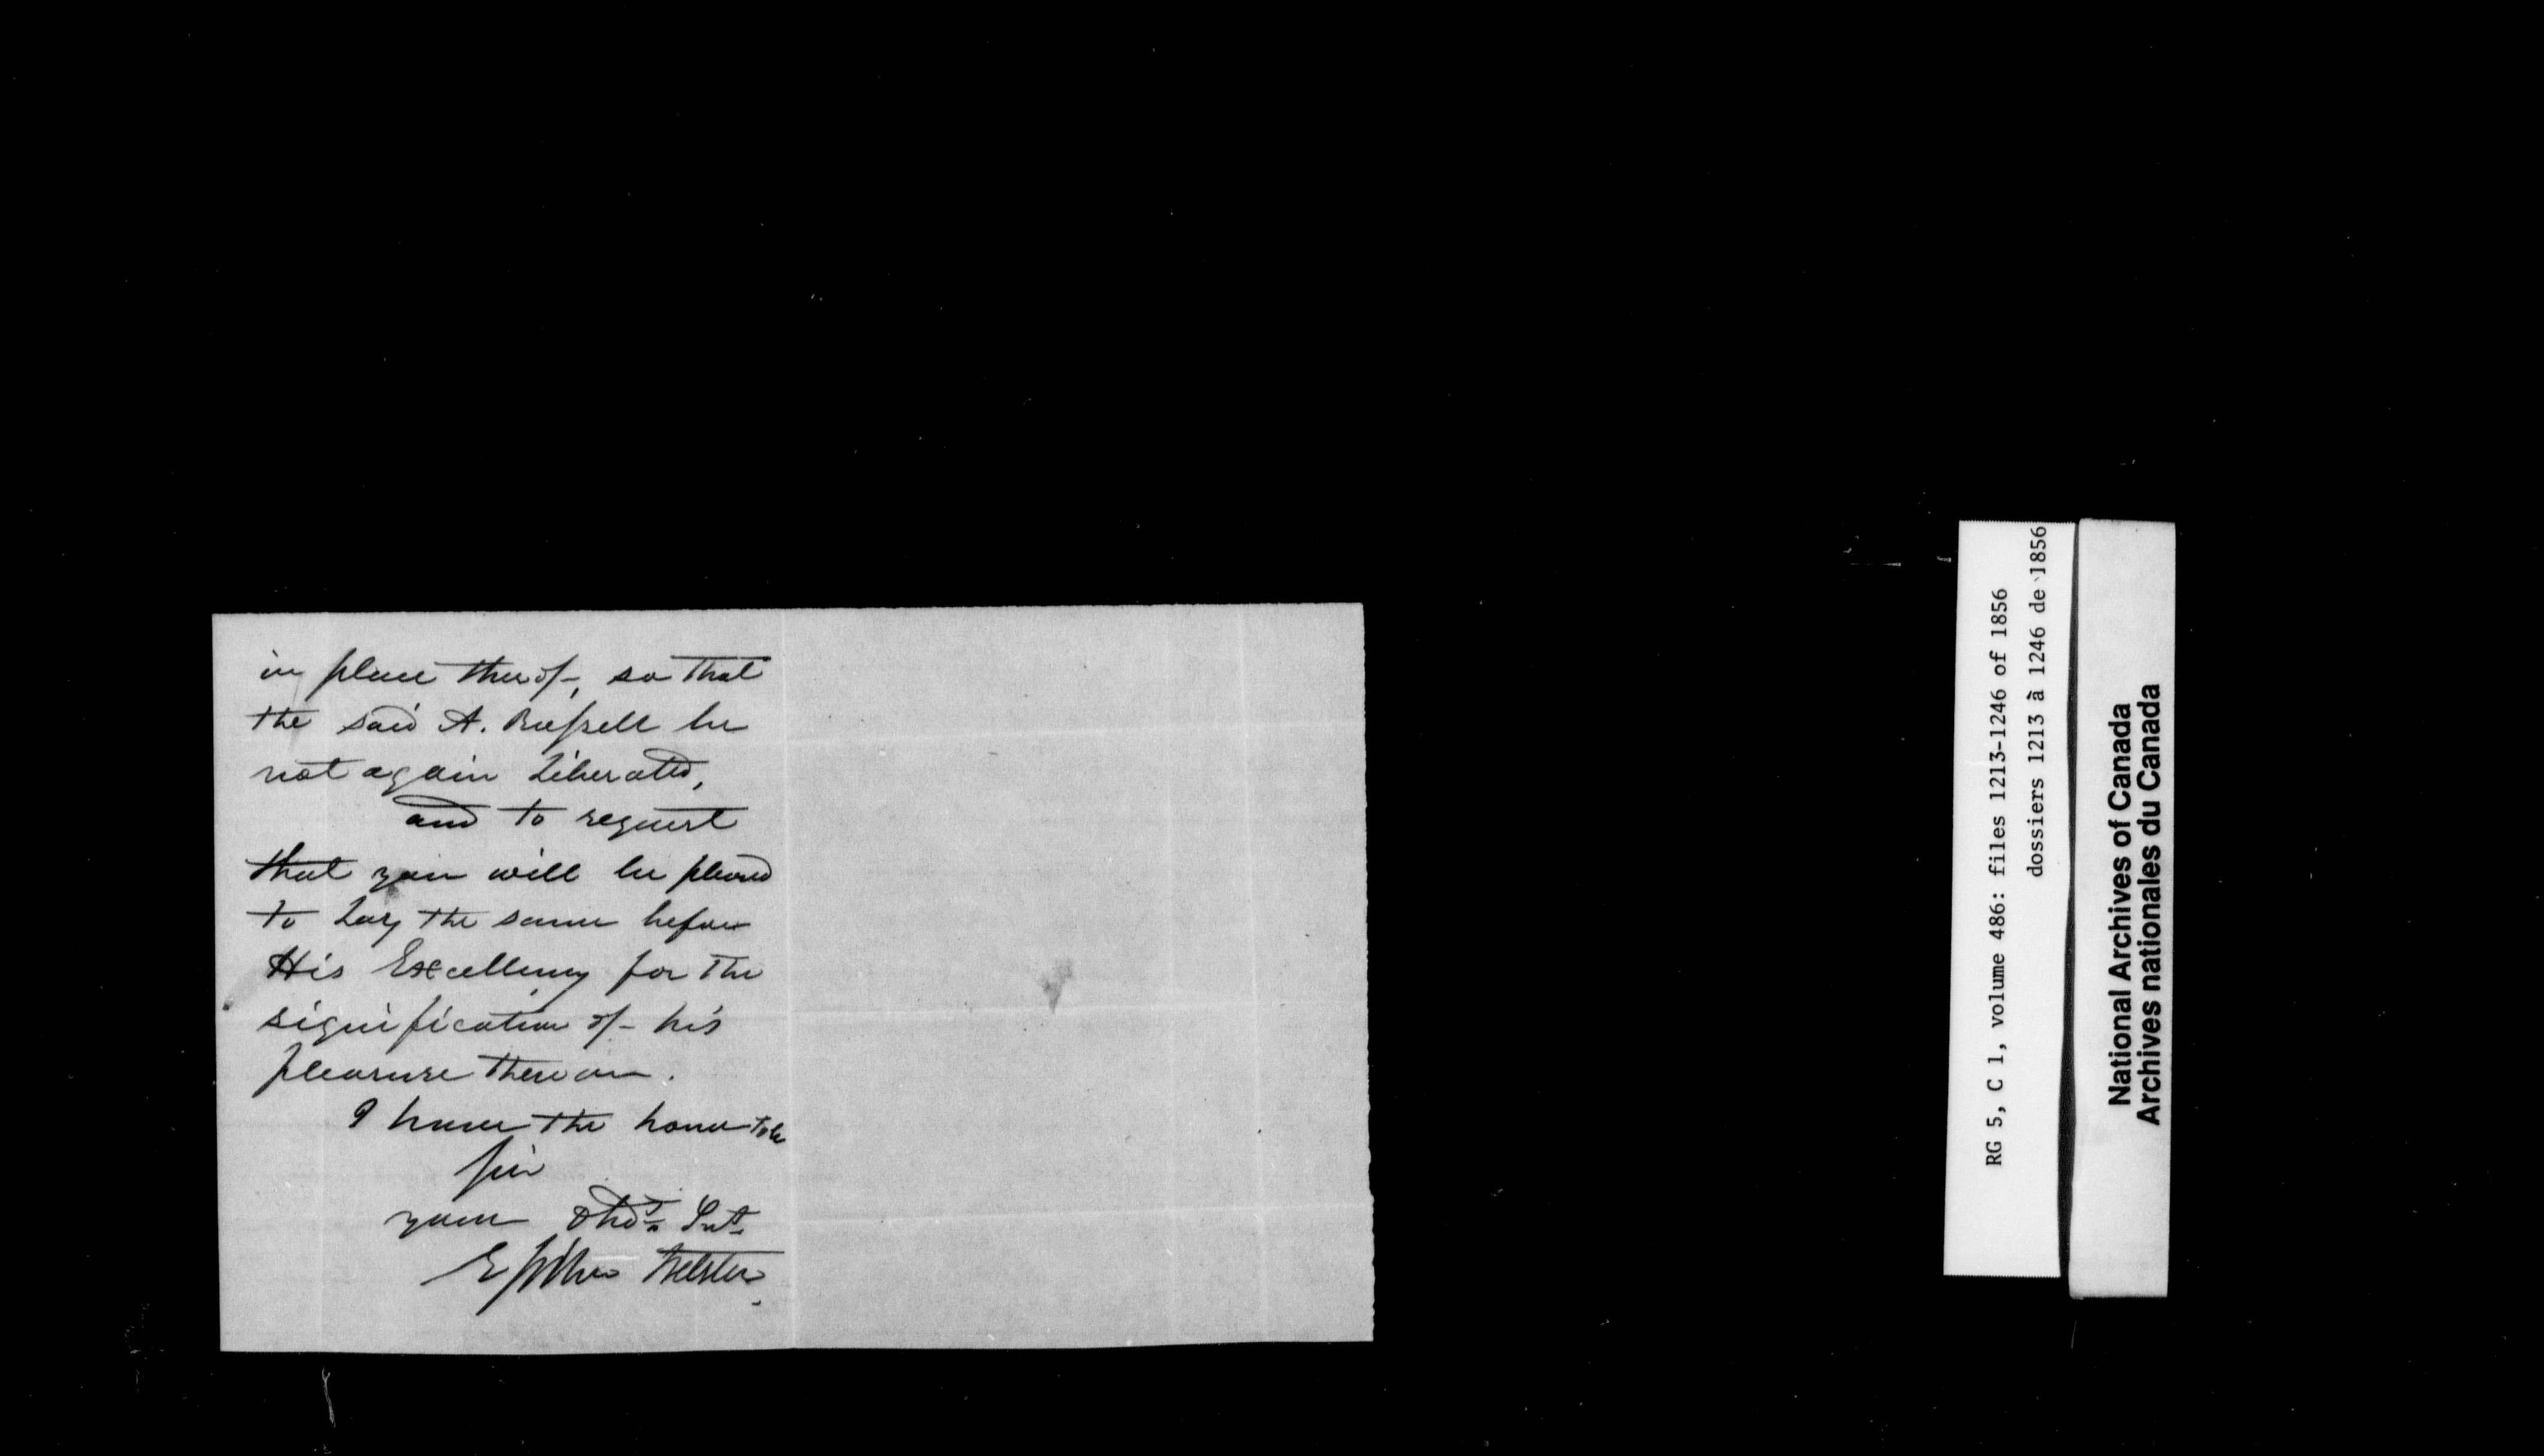 in place therof, so that
the said A. Russell be
not again Liberated,
and to request
that you will be pleased
to Lay the same before
His Excellency for the
signification of his
pleasure thereon.
I have the honor to be
Sir
your Obdt Svt
Webster
RG 5, C 1, volume 486: files 1213-1246 of 1856
dossiers 1213 à 1246 de 1856
National Archives of Canada
Archives nationales du Canada